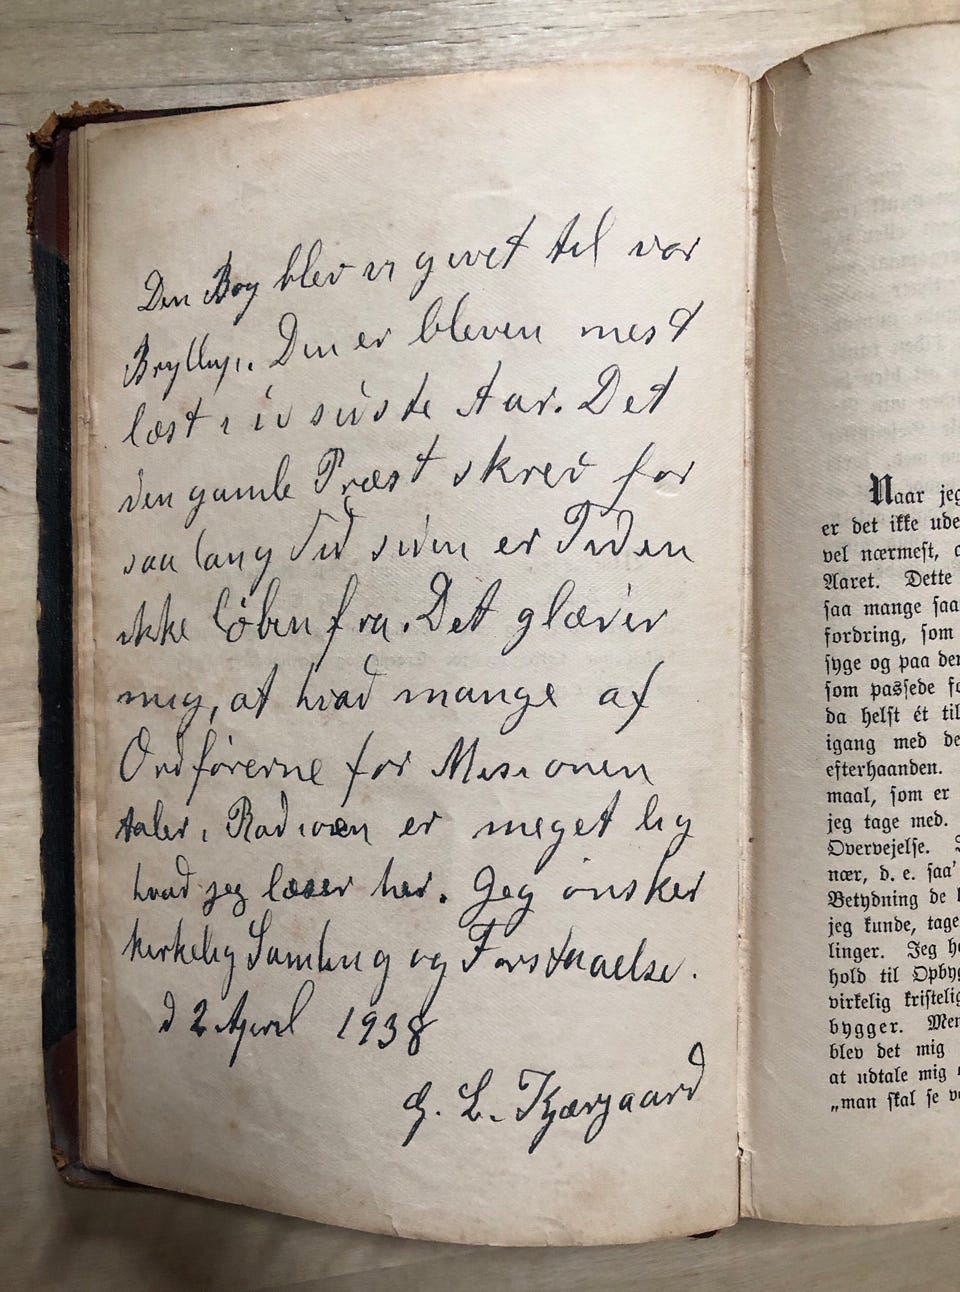 Den Bog blev vi givet til vor
Bryllup. Den er bleven mest
læst i de sidste Aar. Det
den gamle Præst skrev for
saa lang Tid siden er Tiden
ikke löben fra. Det glæder
mig, at hvad mange af
Ordförerne for Misionen
taler i Radioen er meget lig
hvad jeg læser her. Jeg önsker
kirkelig Samling og Forstaaelse.
d 2 April 1938
L. Kjærgaard
Naar jeg
er det ikke ude
vel nærmest,
Aaret. Dette
saa mange saa
fordring, som
syge og paa den
som passede fo
da helst ét til
igang med de
efterhaanden.
maal, som er
jeg tage med.
Overvejelse.
nær, d. e. saa'
Betydning de
jeg kunde, tage
linger. Jeg h
hold til Opbyg
virkelig kristelig
bygger. Men
blev det mig
at udtale mig
„man skal se v